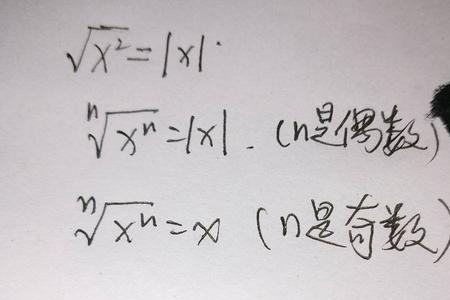 √x² = |x|.
ⁿ√xⁿ = |x|. (n是偶数)
ⁿ√xⁿ = x (n是奇数)